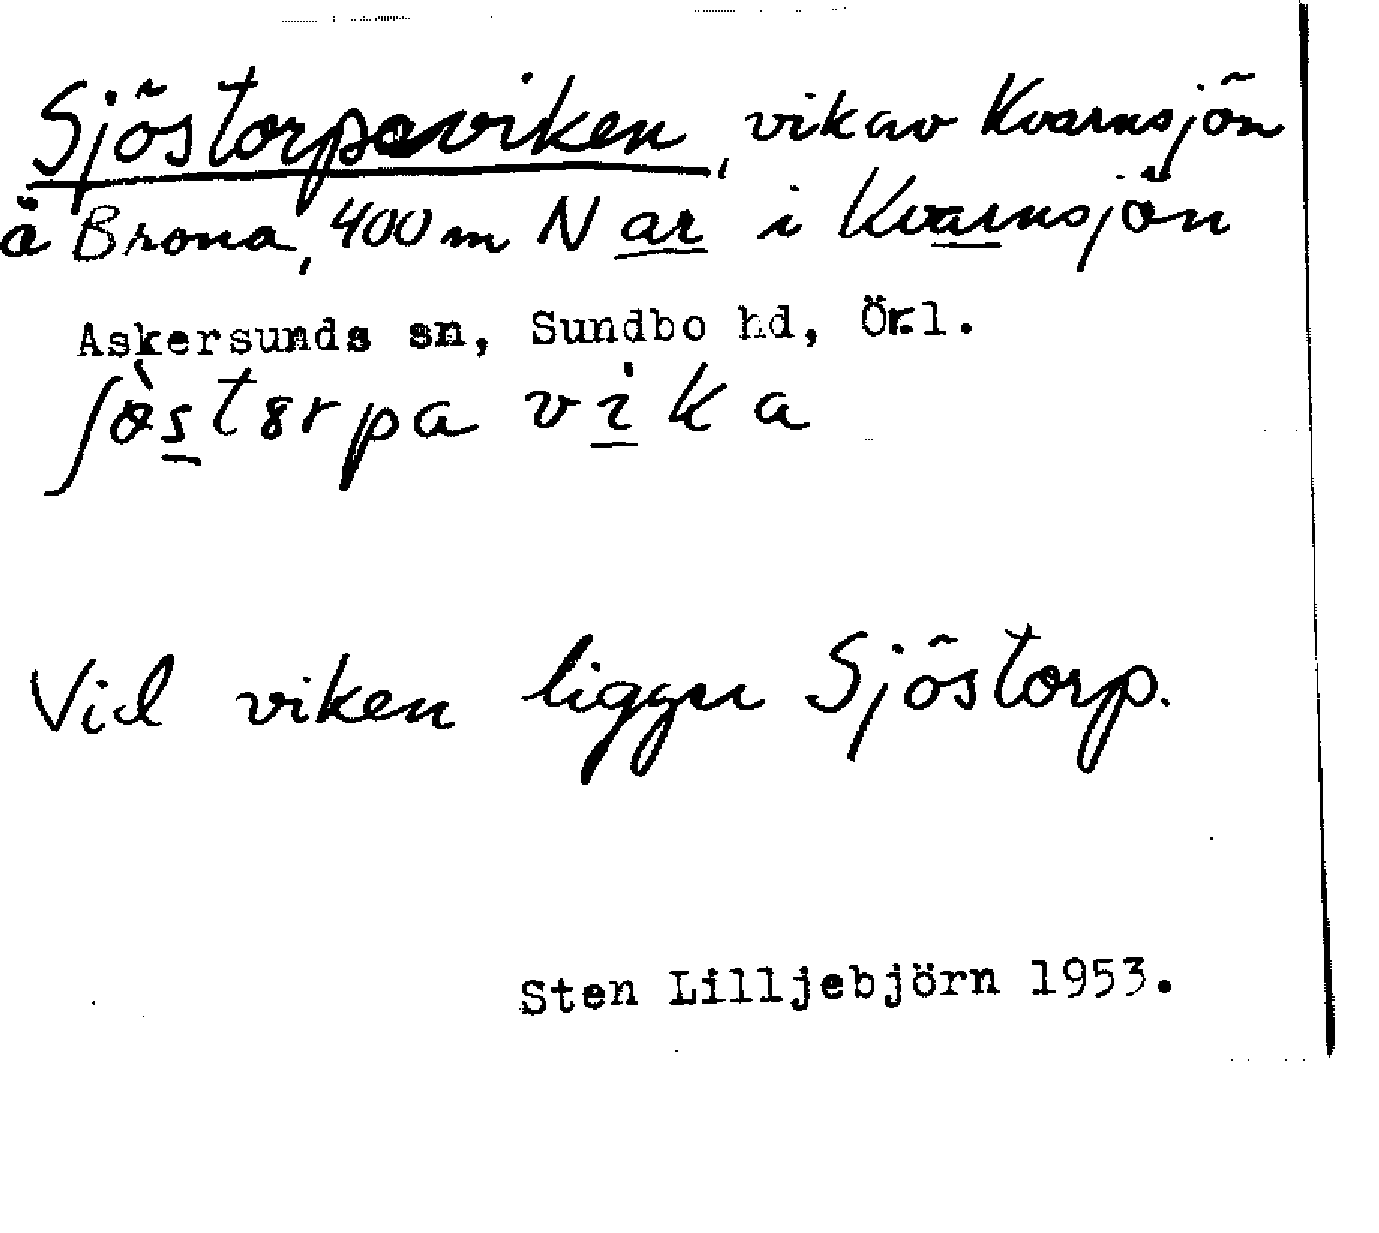 Sjöstorpaviken, vik av Kvarnsjön
å Brona, 400 m N ar i Kvarnsjön
Askersunds sn, Sundbo hd, Ör.l.
ʃöst8rpa vika
Vid viken ligger Sjöstorp.
Sten Lilljebjörn 1953.